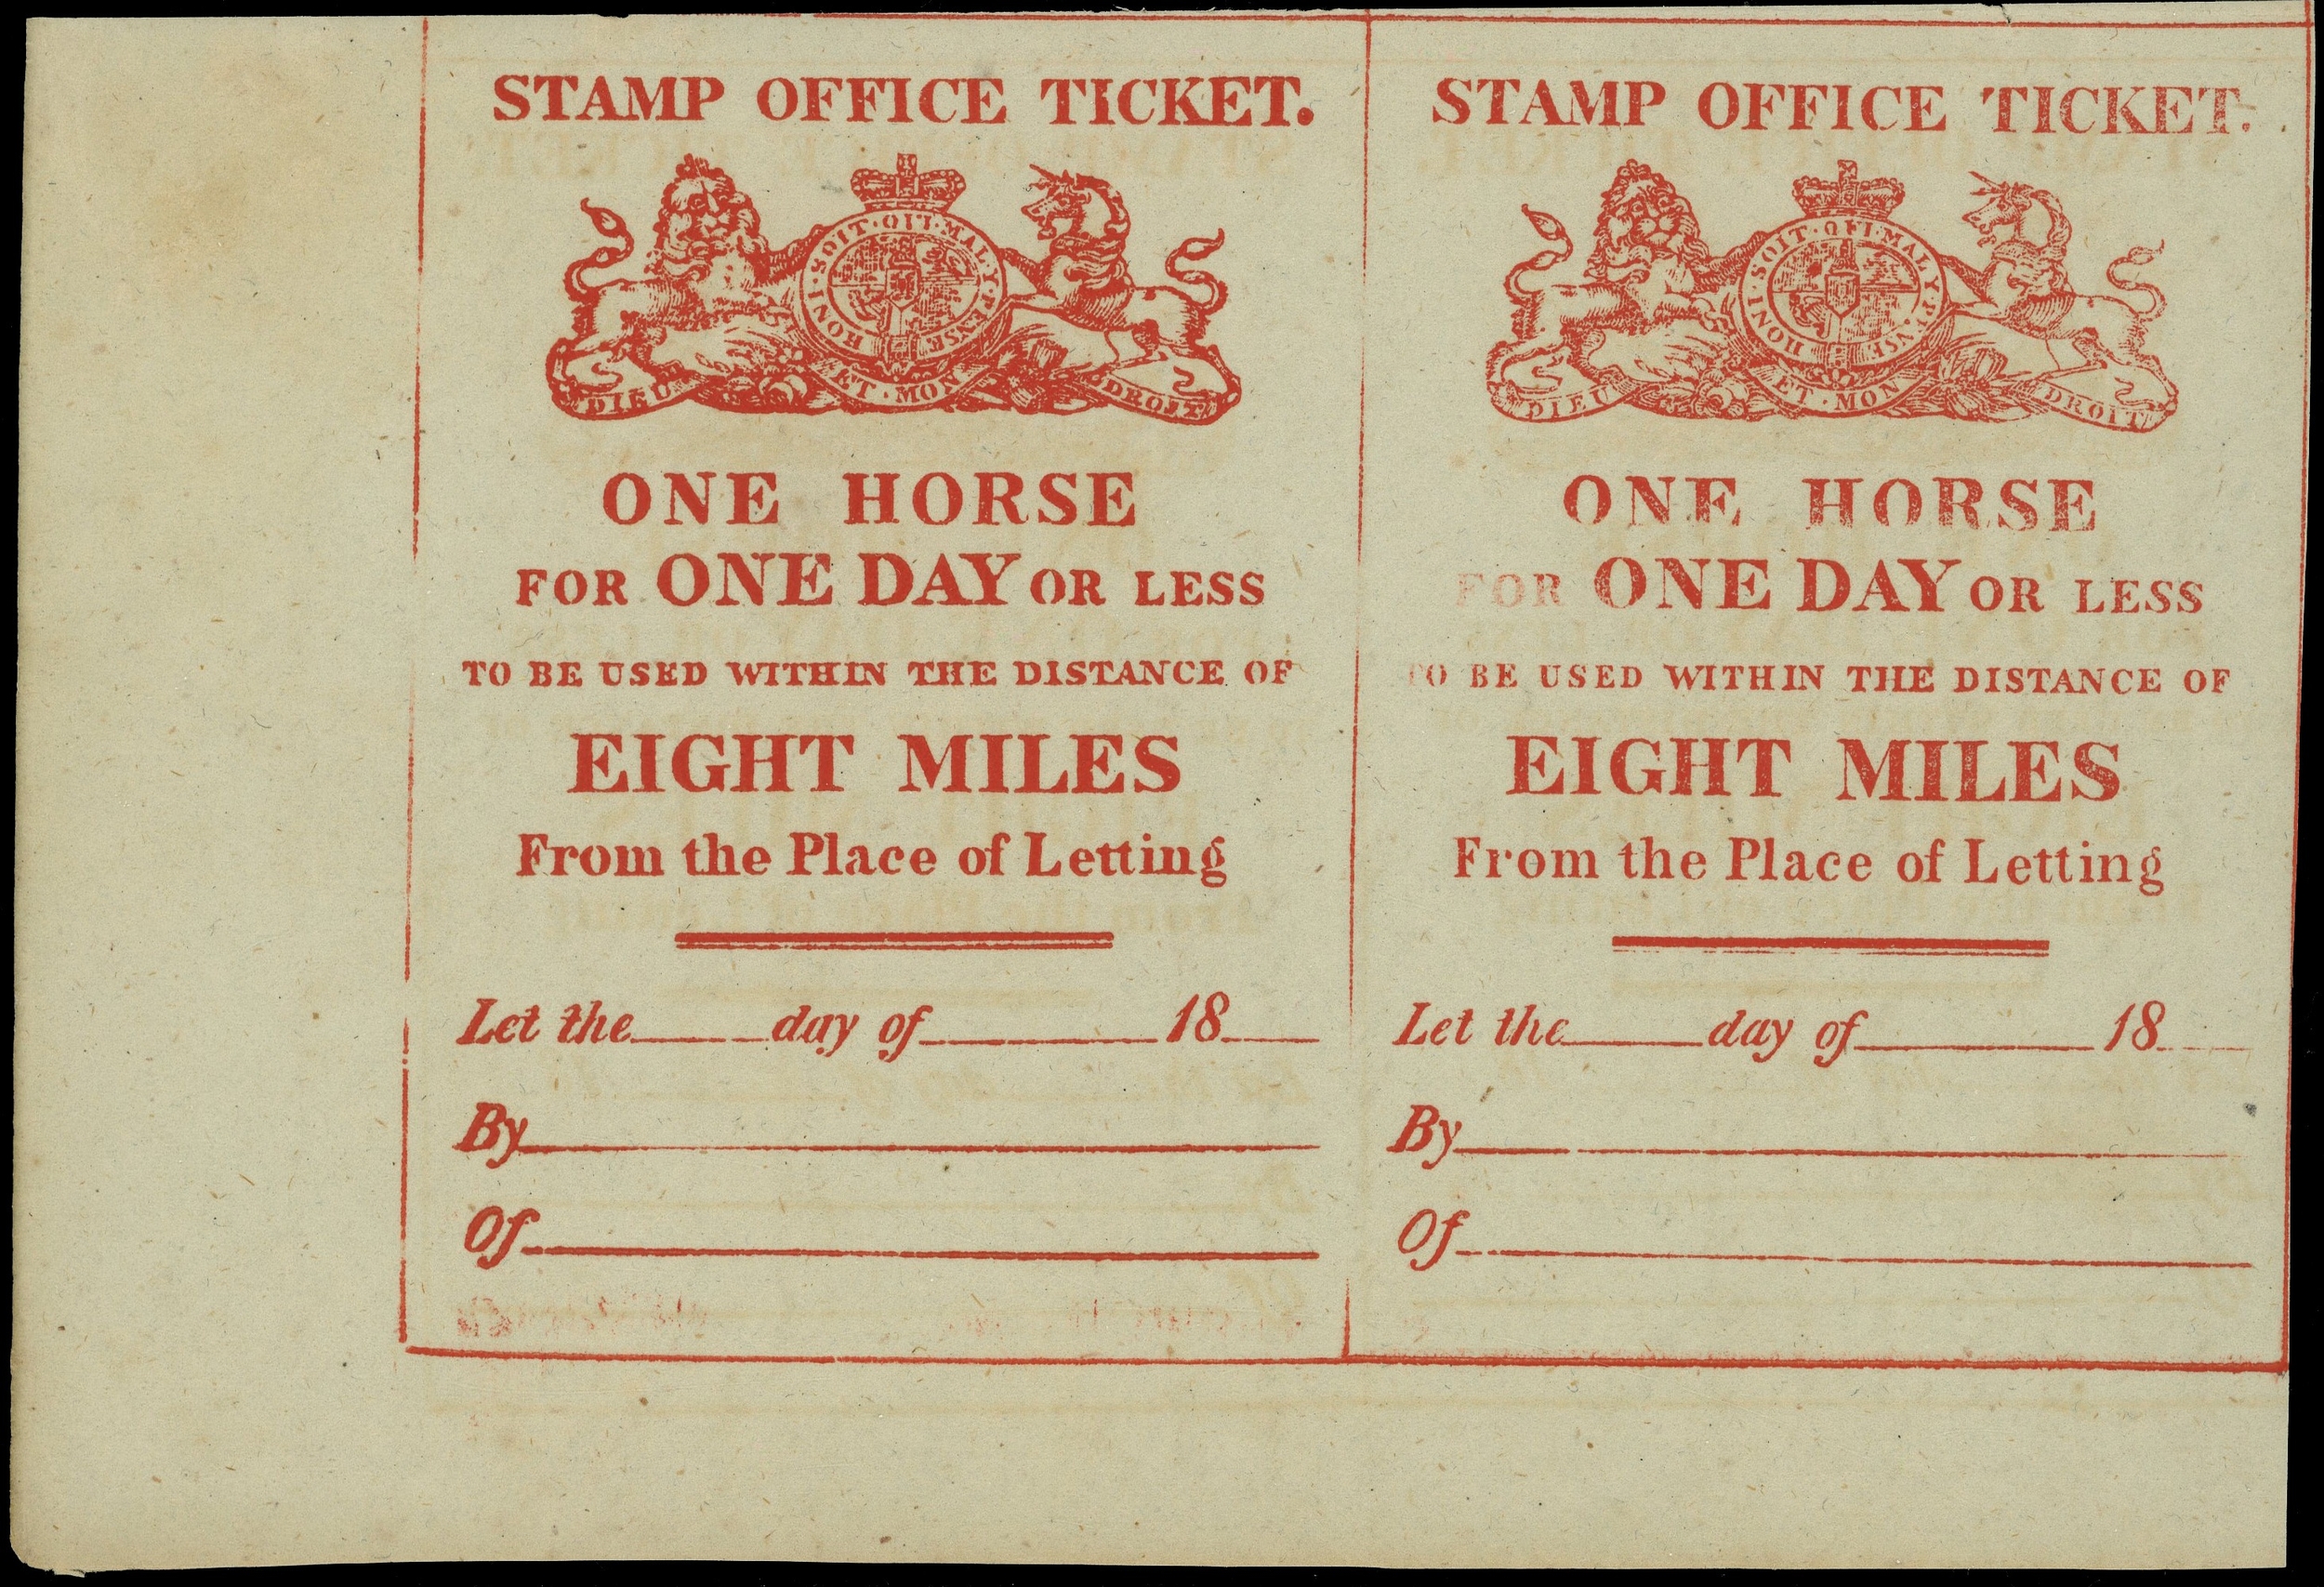 STAMP OFFICE TICKET.
HONI · SOIT · QUI · MAL · Y · PENSE
DIEU ET · MON DROIT
ONE HORSE
FOR ONE DAY OR LESS
TO BE USED WITHIN THE DISTANCE OF
EIGHT MILES
From the Place of Letting
Let the day of 18
By
Of
STAMP OFFICE TICKET.
HONI · SOIT · QUI · MAL · Y · PENSE
DIEU ET · MON DROIT
ONE HORSE
FOR ONE DAY OR LESS
TO BE USED WITHIN THE DISTANCE OF
EIGHT MILES
From the Place of Letting
Let the day of 18
By
Of